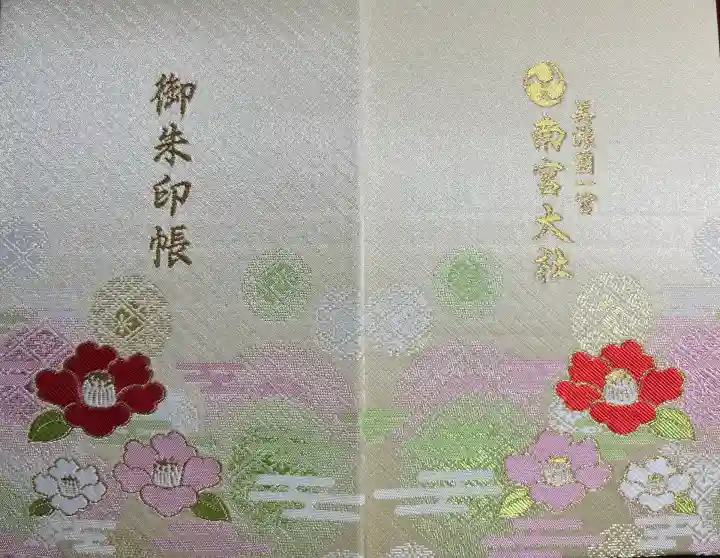 御朱印帳
美濃國一宮
南宮大社